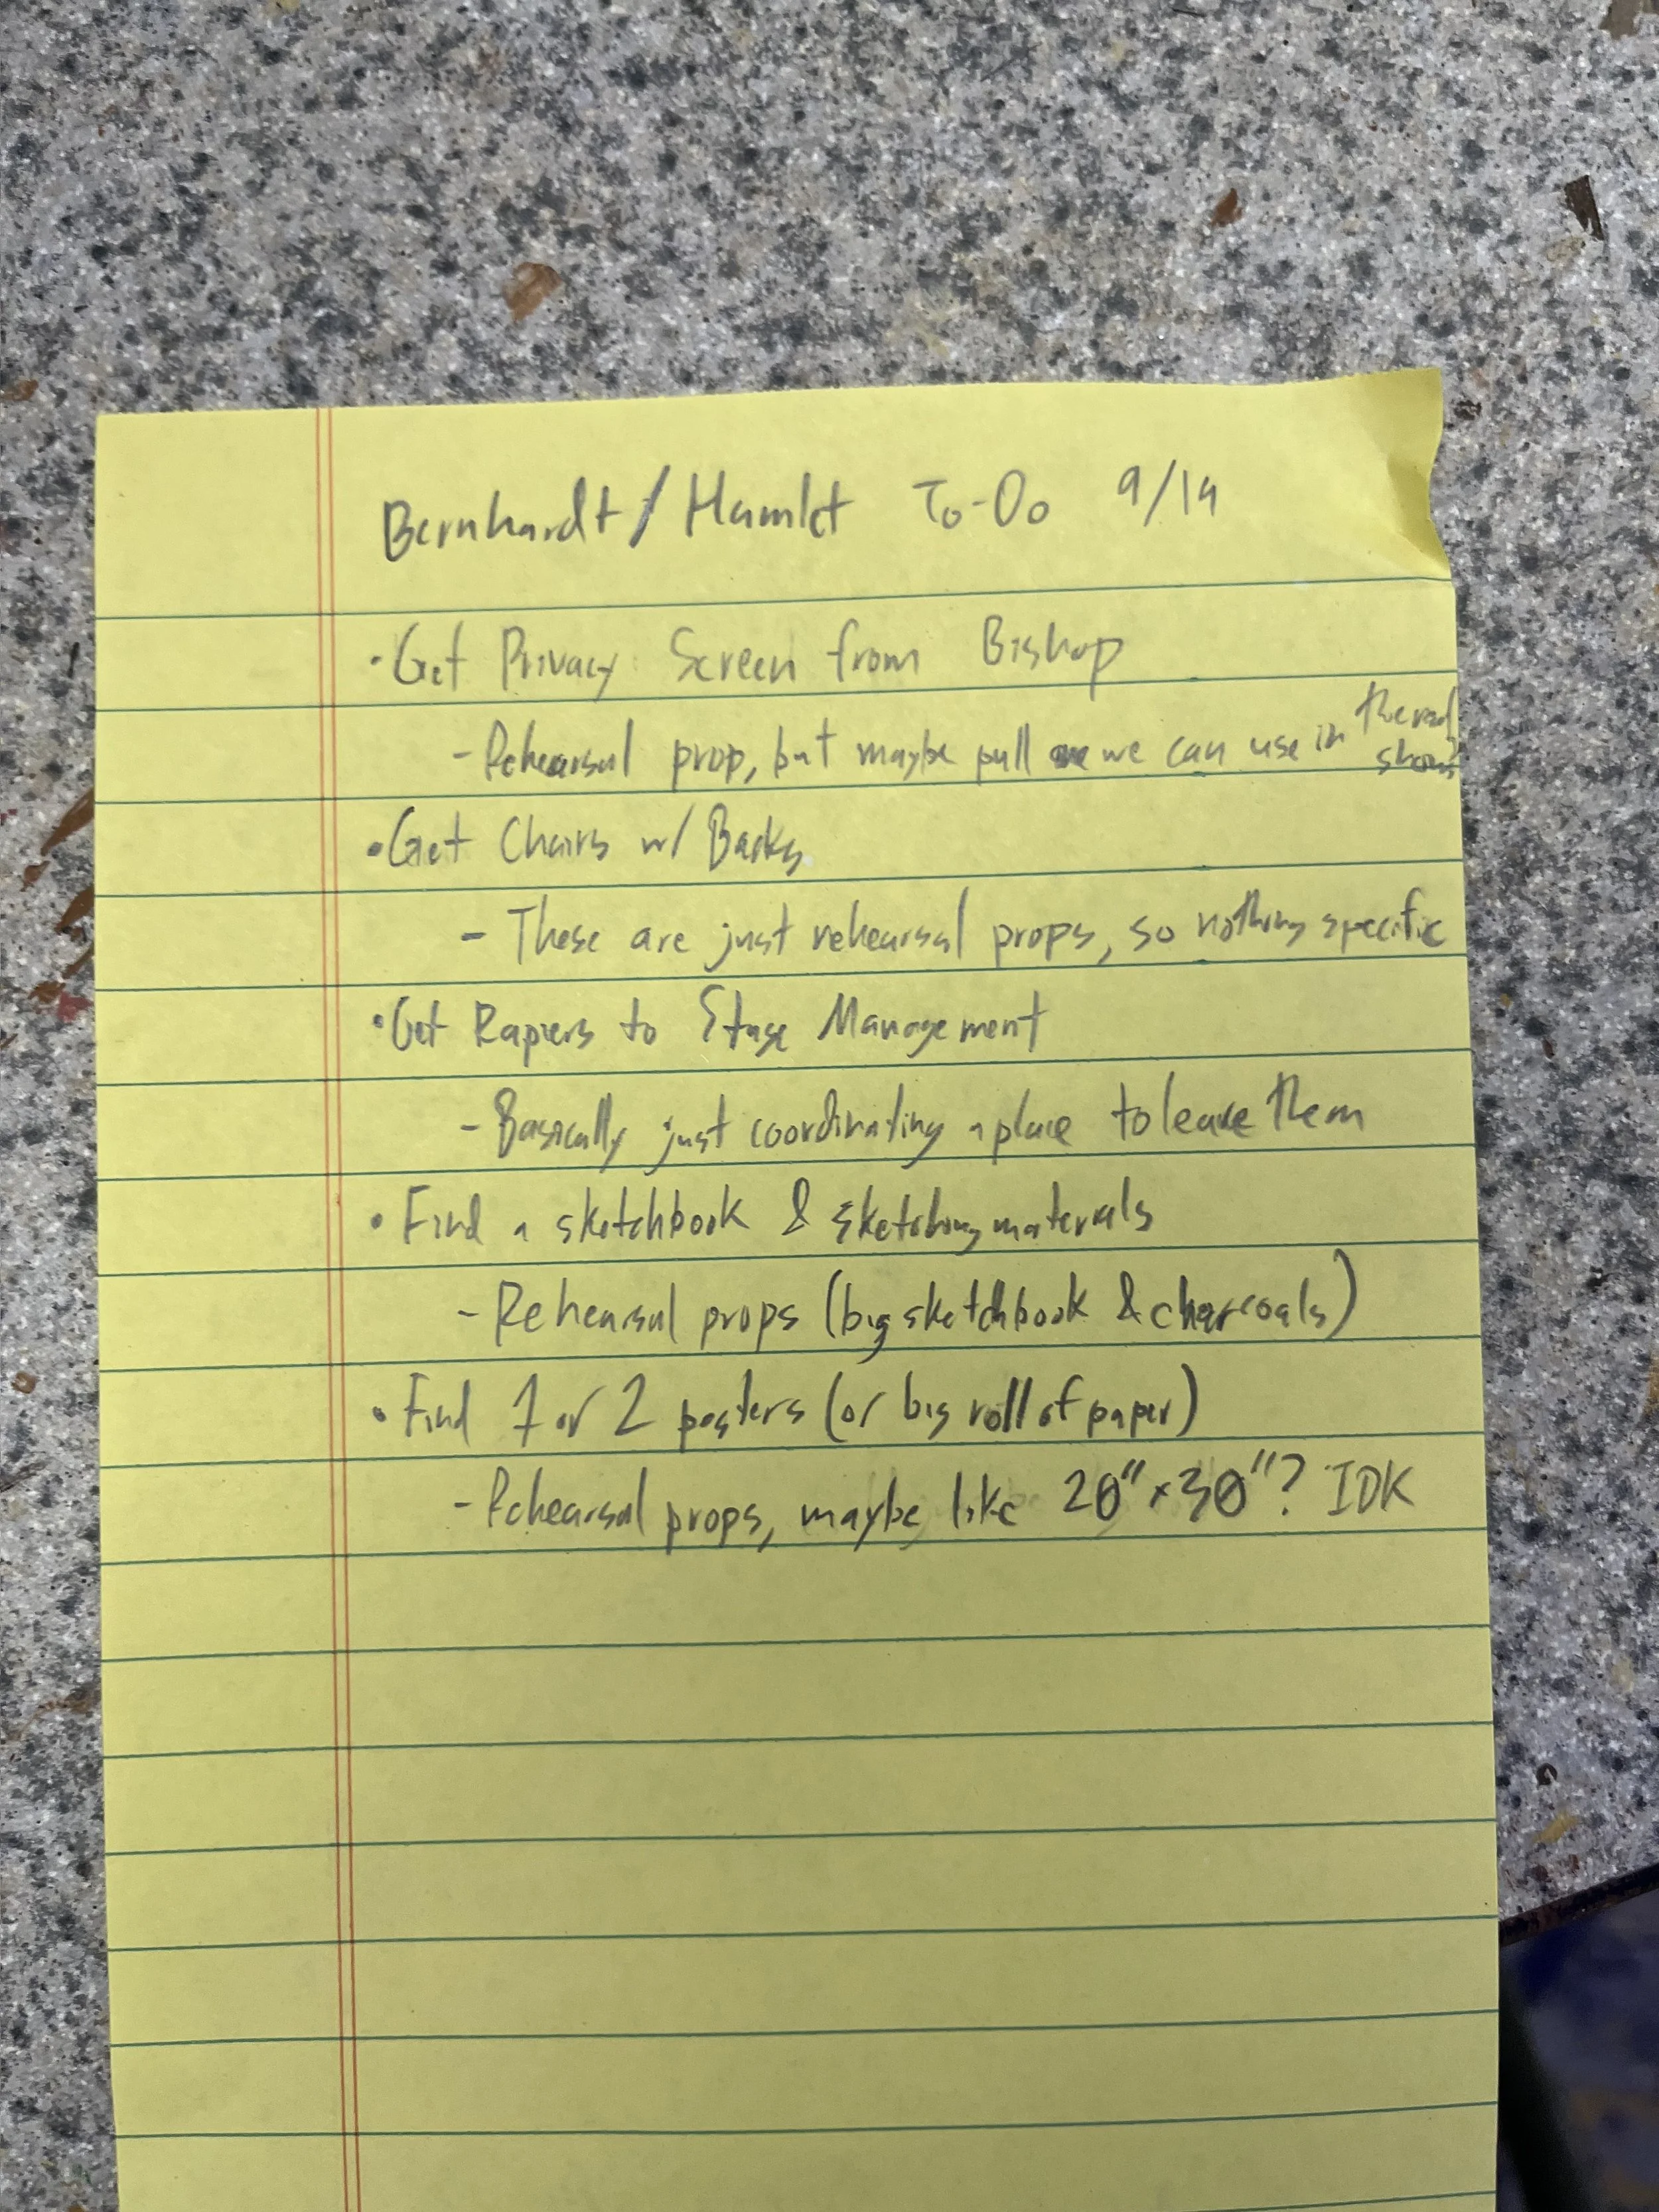 Bernhardt/Hamlet To-Do 9/19
•Get Privacy Screen from Bishop
- Rehearsal prop, but maybe pull one we can use in the real show?
•Get Chairs w/ Backs
- These are just rehearsal props, so nothing specific
•Get Rapiers to Stage Management
- Basically just coordinating a place to leave them
• Find a sketchbook & sketching materials
- Rehearsal props (big sketchbook & charcoals)
• Find 1 or 2 posters (or big roll of paper)
- Rehearsal props, maybe like 20" x 30"? IDK